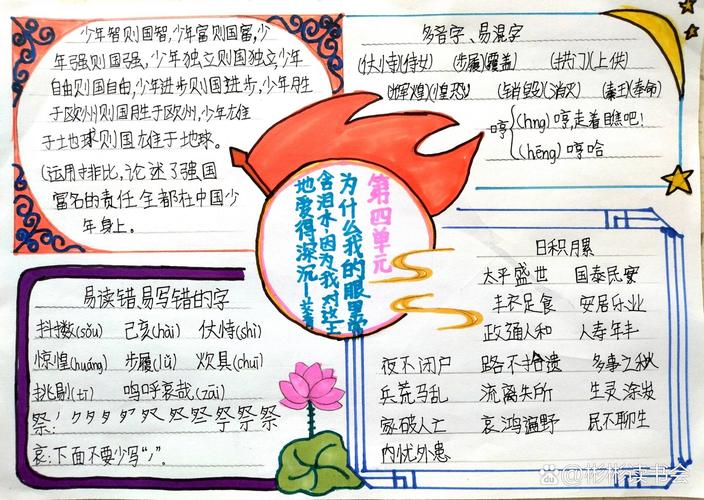 少年智则国智,少年富则国富,少
年强则国强,少年独立则国独立,少年
自由则国自由,少年进步则国进步,少年胜
于欧州则国胜于欧州,少年雄
于土地球则国雄于地球。
(运用排比,论述了强国
富名的责任全都在中国少
年身上。
多音字、易混字
(伏侍)(侍女) (步履)(覆盖) (拱门)(上供)
(辉煌)(惶恐) (销毁)(消灭) (秦王)(奉命)
哼
(hng)哼,走着瞧吧!
(hēng)哼哈
第四单元
为什么我的眼里常
含泪水,因为我对这土
地爱得深沉—艾青
易读错、易写错的字
抖擞(sǒu) 己亥(hài) 伏恃(shì)
惊惶(huáng) 步履(lǚ) 炊具(chuī)
挑剔(tī) 呜呼哀哉(zāi)
祭:
哀:下面不要少写“ノ”。
日积月累
太平盛世 国泰民安
丰衣足食 安居乐业
政通人和 人寿年丰
夜不闭户 路不拾遗 多事之秋
兵荒马乱 流离失所 生灵涂炭
家破人亡 哀鸿遍野 民不聊生
内忧外患
@彬彬读书会